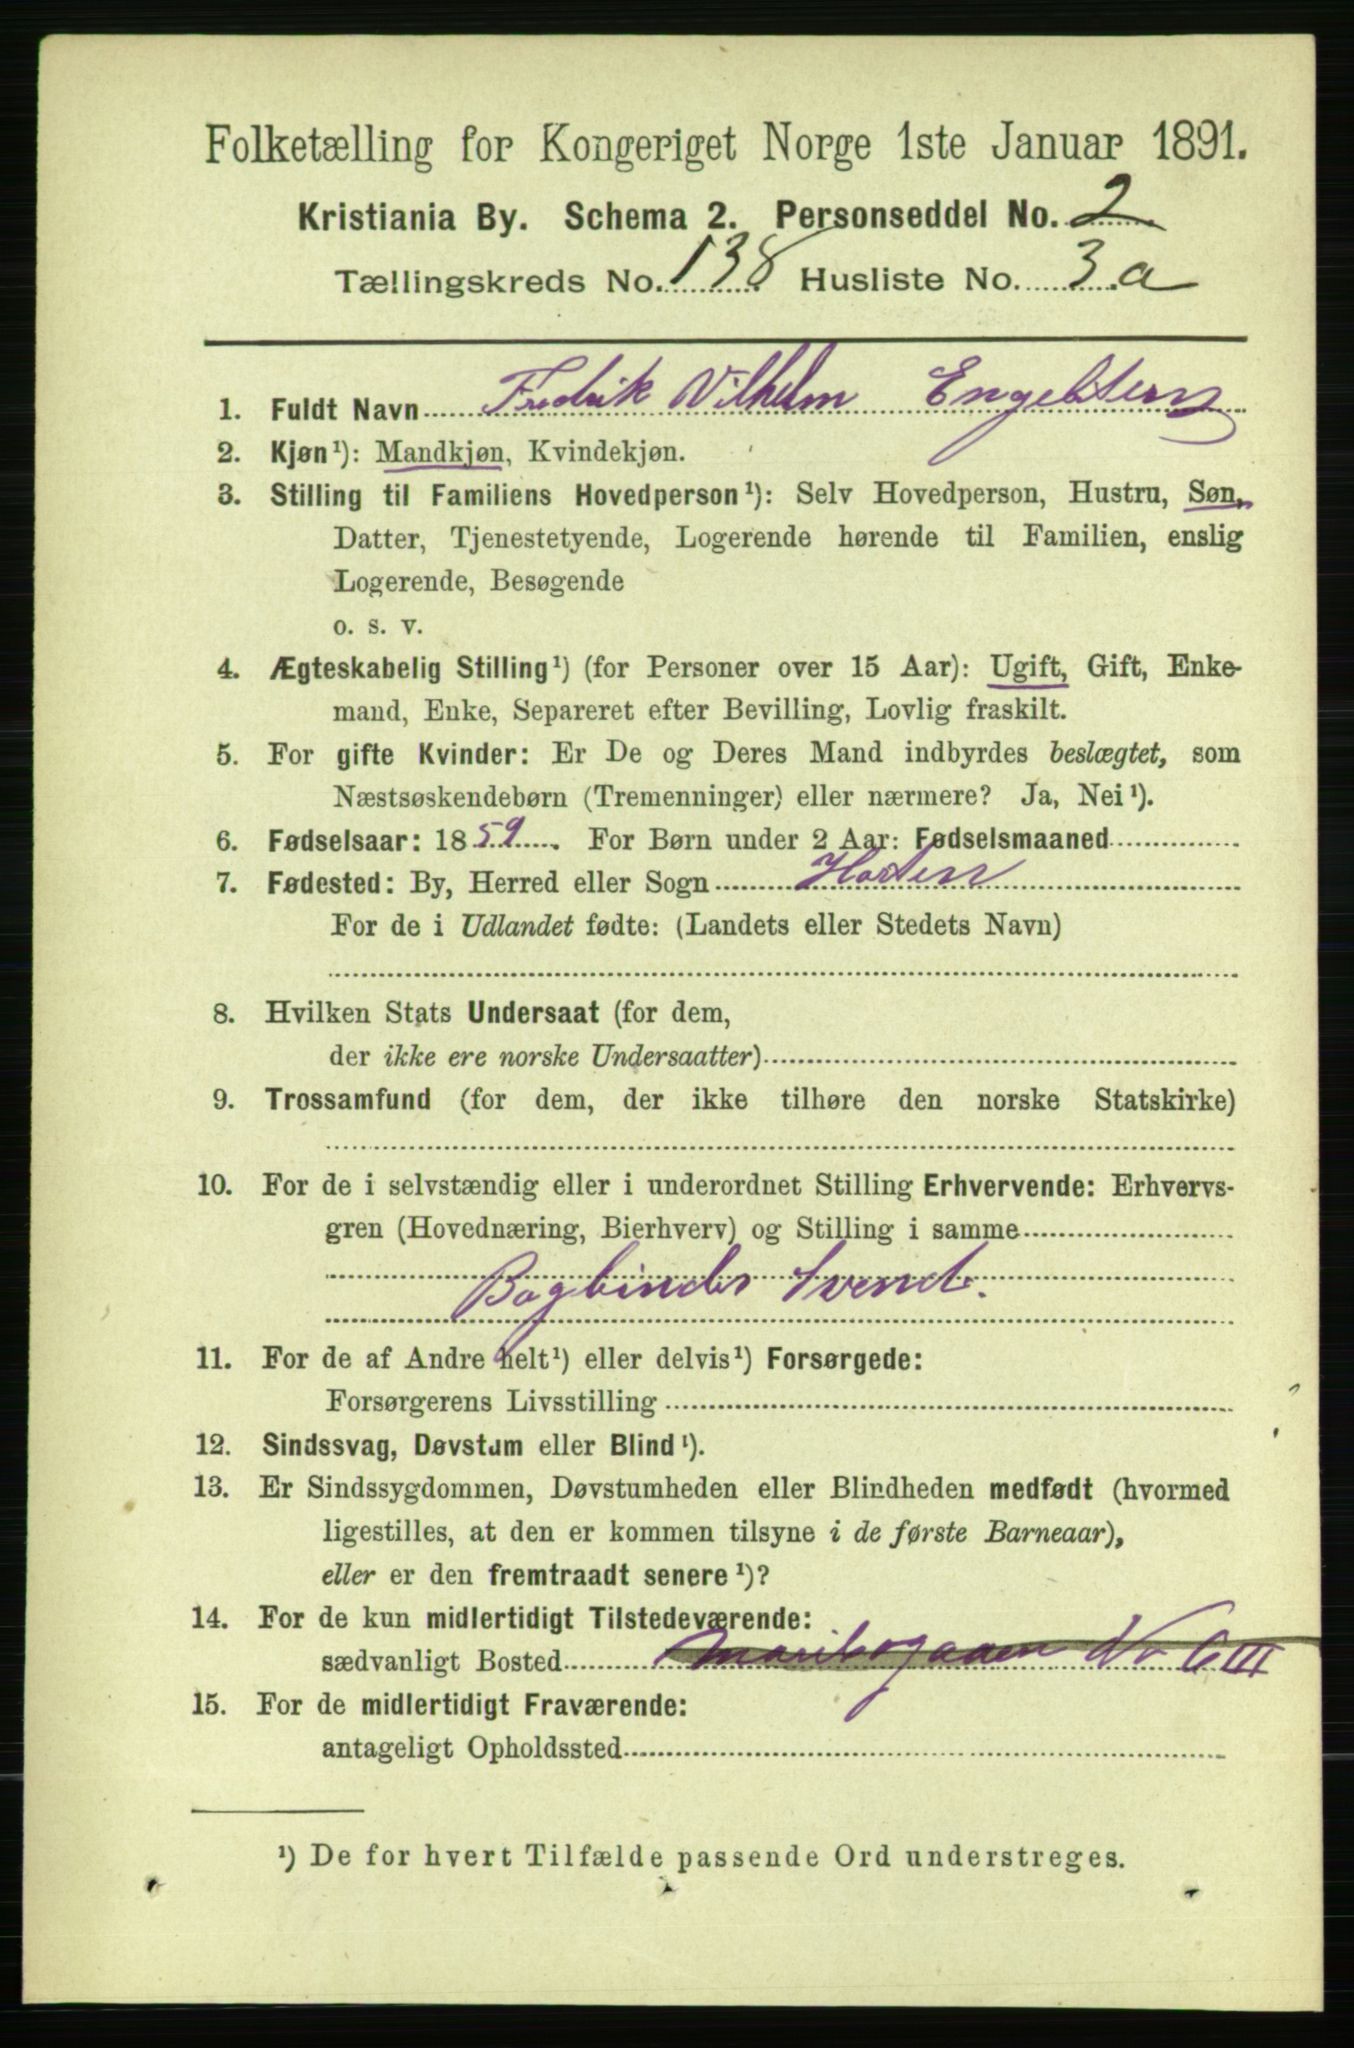 Folketælling for Kongeriget Norge 1ste Januar 1891.
Kristiania By. Schema 2. Personseddel No. 2
Tællingskreds No. 138 Husliste No. 3 a
1. Fuldt Navn Fredrik Vilhelm Engebtsen
2. Kjøn¹): Mandkjøn, Kvindekjøn.
3. Stilling til Familiens Hovedperson¹): Selv Hovedperson, Hustru, Søn,
Datter, Tjenestetyende, Logerende hørende til Familien, enslig
Logerende, Besøgende
o. s. v.
4. Ægteskabelig Stilling¹) (for Personer over 15 Aar): Ugift, Gift, Enke-
mand, Enke, Separeret efter Bevilling, Lovlig fraskilt.
5. For gifte Kvinder: Er De og Deres Mand indbyrdes beslægtet, som
Næstsøskendebørn (Tremenninger) eller nærmere? Ja, Nei¹).
6. Fødselsaar: 1859. For Børn under 2 Aar: Fødselsmaaned
7. Fødested: By, Herred eller Sogn Horten
For de i Udlandet fødte: (Landets eller Stedets Navn)
8. Hvilken Stats Undersaat (for dem,
der ikke ere norske Undersaatter)
9. Trossamfund (for dem, der ikke tilhøre den norske Statskirke)
10. For de i selvstændig eller i underordnet Stilling Erhvervende: Erhvervs-
gren (Hovednæring, Bierhverv) og Stilling i samme
Bogbinder Svend.
11. For de af Andre helt¹) eller delvis¹) Forsørgede:
Forsørgerens Livsstilling
12. Sindssvag, Døvstum eller Blind¹).
13. Er Sindssygdommen, Døvstumheden eller Blindheden medfødt (hvormed
ligestilles, at den er kommen tilsyne i de første Barneaar),
eller er den fremtraadt senere¹)?
14. For de kun midlertidigt Tilstedeværende:
sædvanligt Bosted Maribogaden No 6 III
15. For de midlertidigt Fraværende:
antageligt Opholdssted
¹) De for hvert Tilfælde passende Ord understreges.